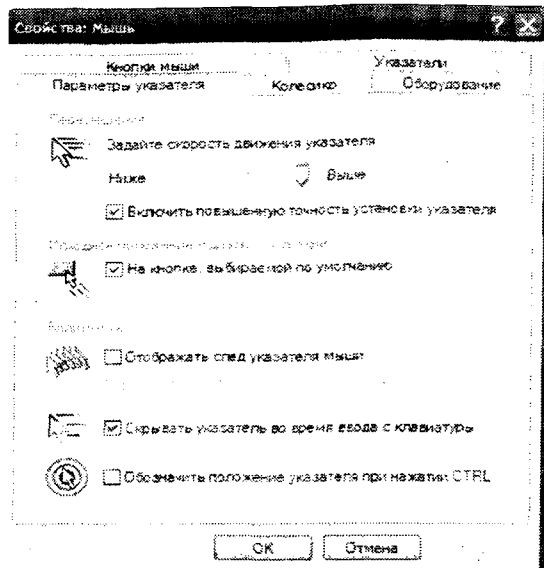 Свойства: Мышь
Кнопки мыши Указатели
Параметры указателя Колесико Оборудование
Перемещение
Задайте скорость движения указателя
Ниже Выше
Включить повышенную точность установки указателя
На кнопке, выбираемой по умолчанию
Видимость
Отображать след указателя мыши
Скрывать указатель во время ввода с клавиатуры
Обозначить положение указателя при нажатии CTRL
OK Отмена